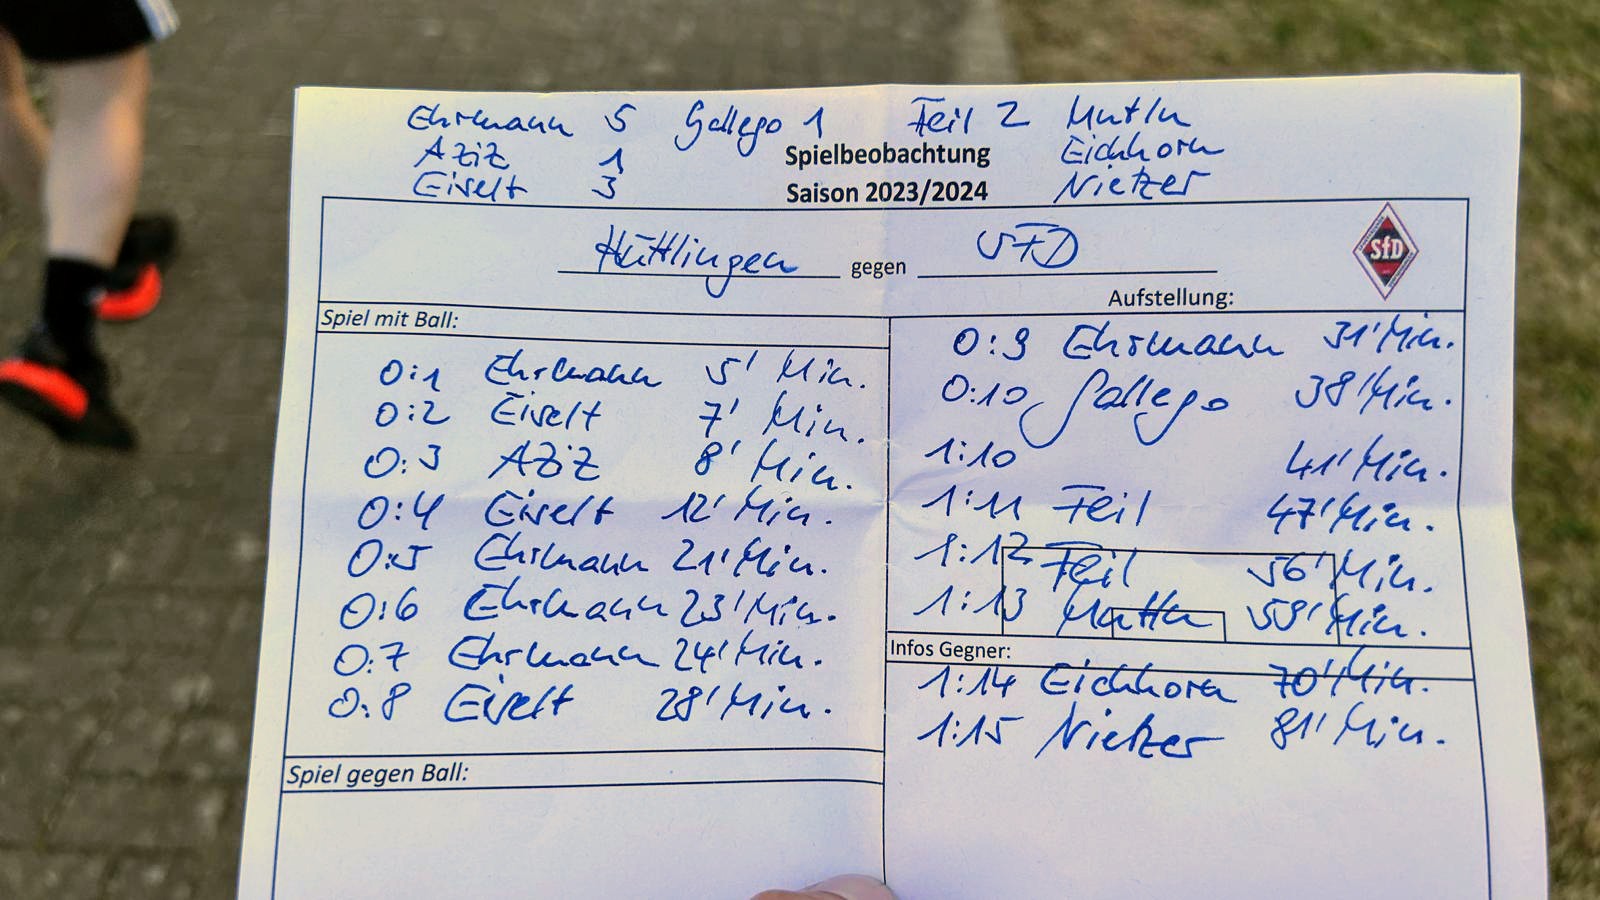 Ehrmann 5 Gallego 1 Feil 2 Mutlu
Aziz 1 Spielbeobachtung Eichhorn
Eiselt 3 Saison 2023/2024 Nietzer
Hüttlingen gegen SFD
SfD
Aufstellung:
Spiel mit Ball:
0:1 Ehrmann 5' Min.
0:2 Eiselt 7' Min.
0:3 Aziz 8' Min.
0:4 Eiselt 12' Min.
0:5 Ehrmann 21' Min.
0:6 Ehrmann 23' Min.
0:7 Ehrmann 24' Min.
0:8 Eiselt 28' Min.
Spiel gegen Ball:
0:9 Ehrmann 31' Min.
0:10 Gallego 38' Min.
1:10 41' Min.
1:11 Feil 47' Min.
1:12 Feil 56' Min.
1:13 Mutlu 59' Min.
Infos Gegner:
1:14 Eichhorn 70' Min.
1:15 Nietzer 81' Min.